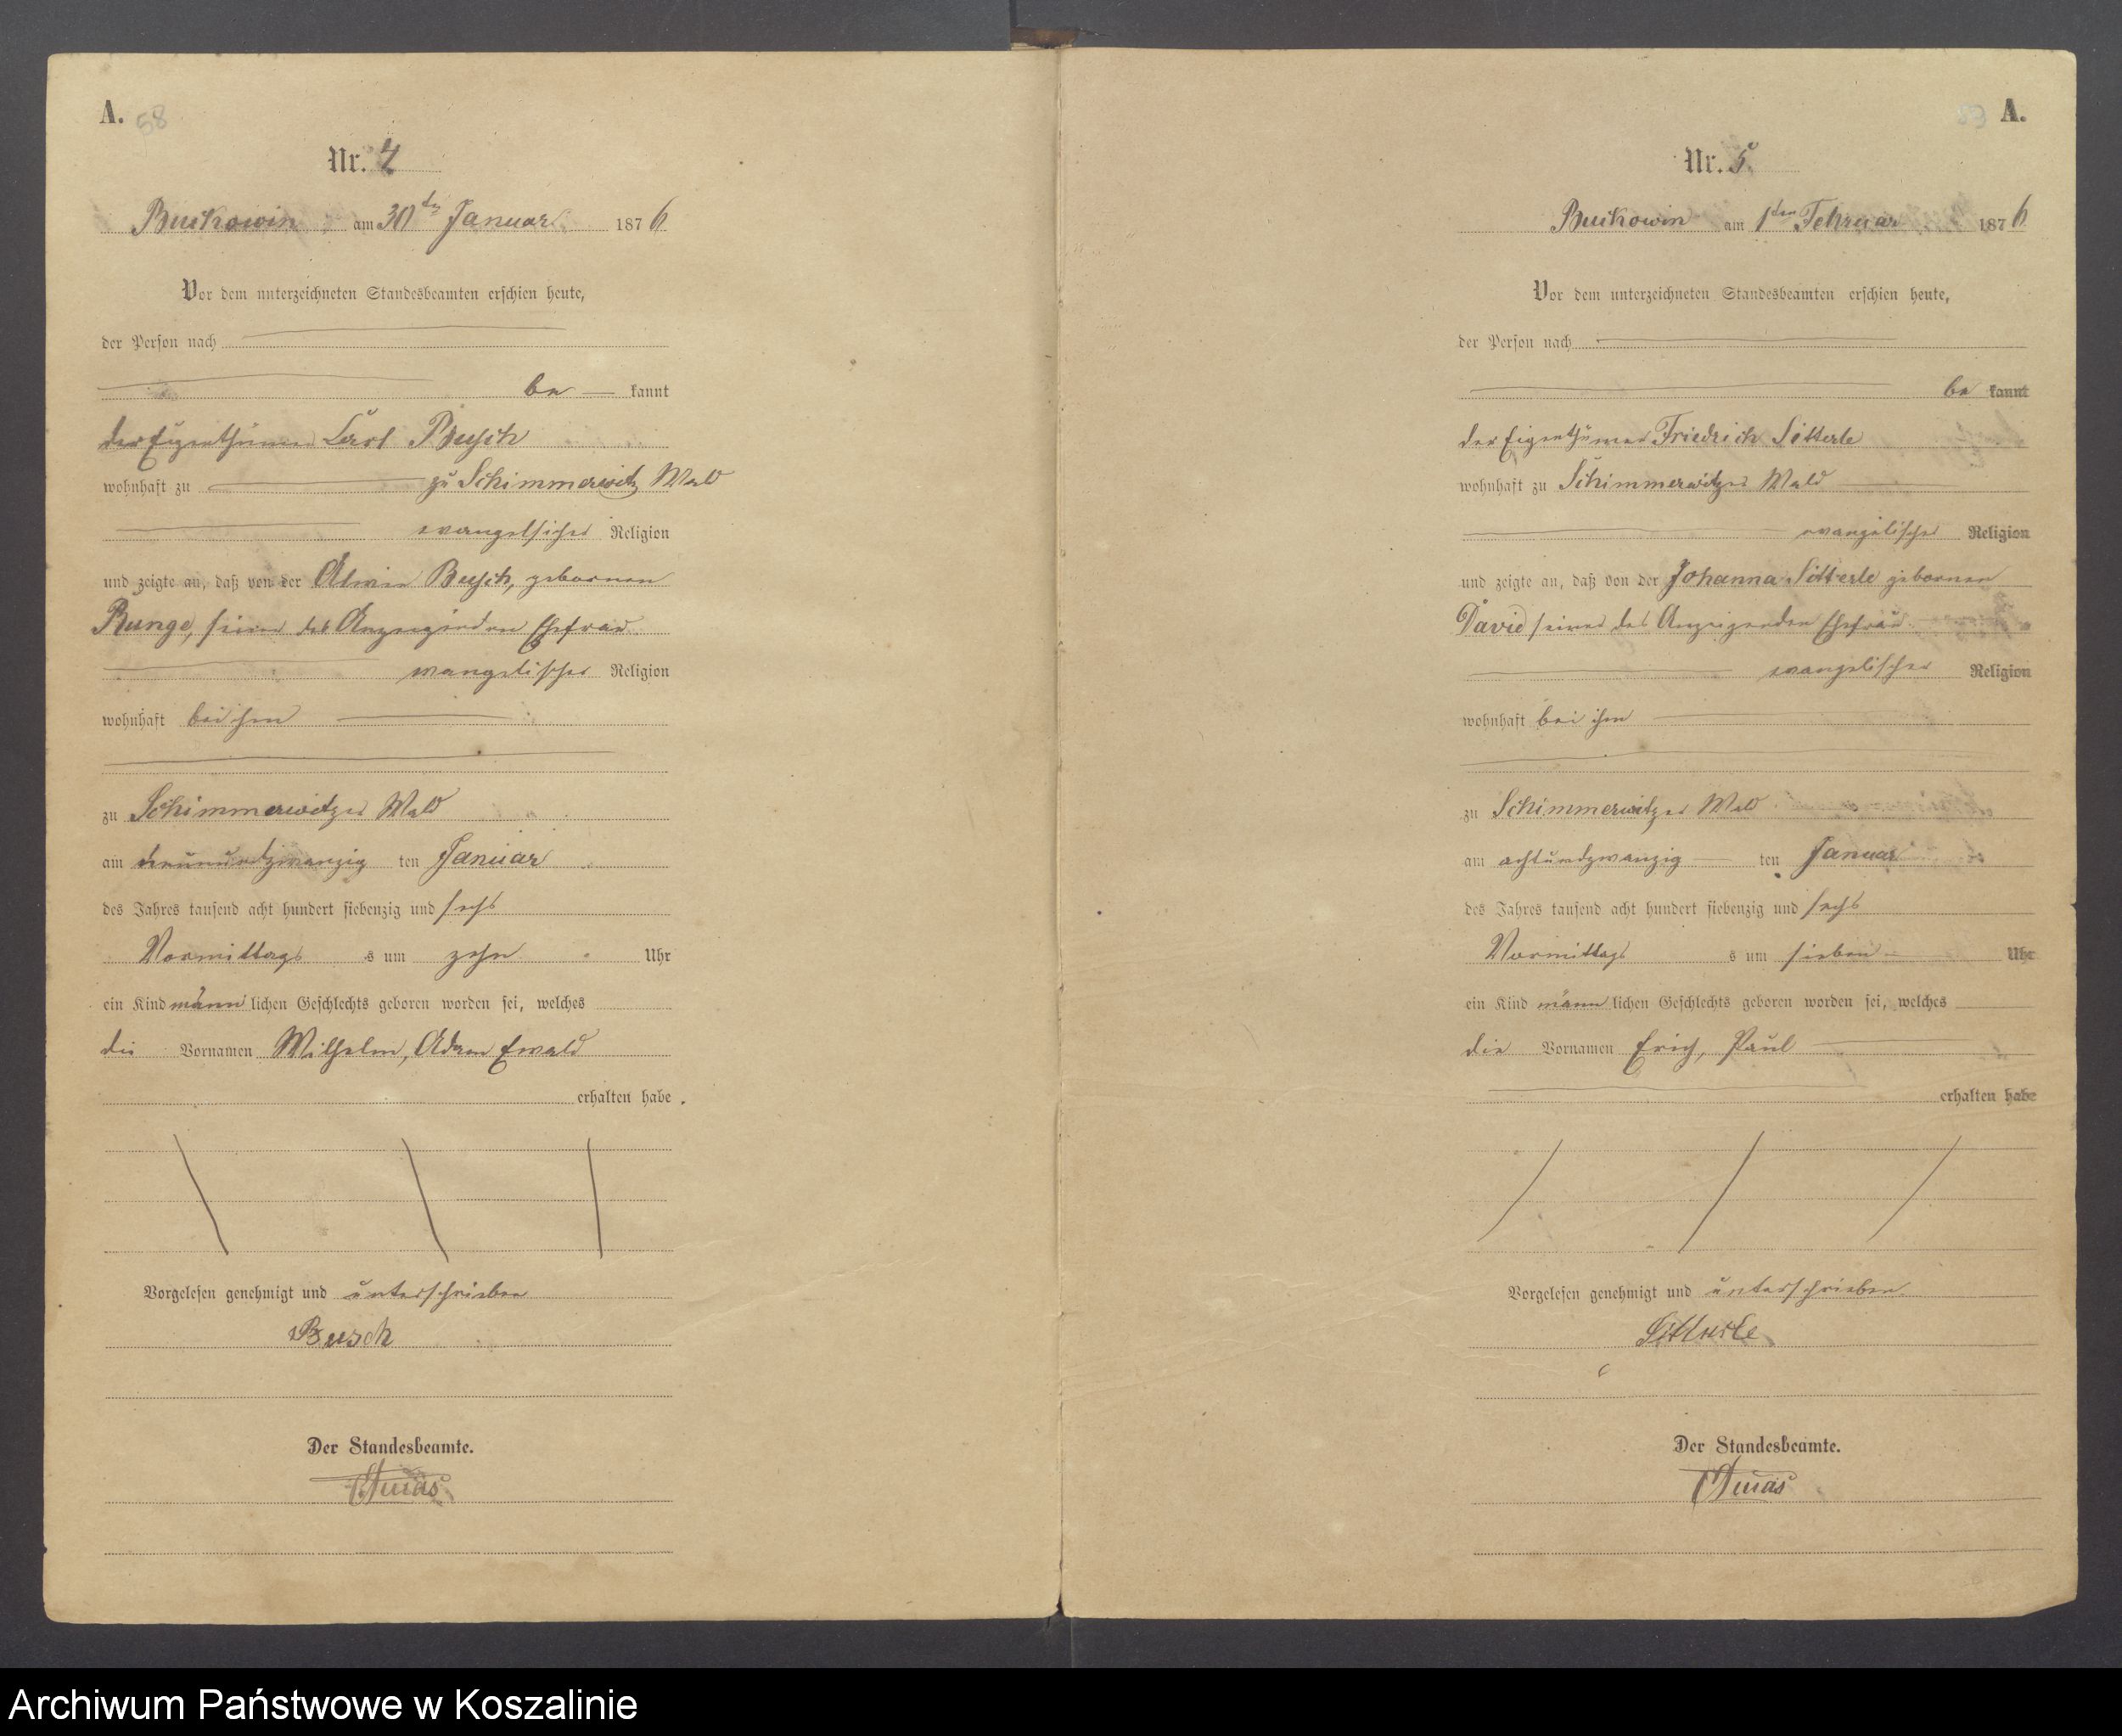 A. 58
Nr. 4
Buckowin am 30ten Januar 1876
Vor dem unterzeichneten Standesbeamten erschien heute,
der Person nach
be kannt
der Eigenthümer Carl Busch
wohnhaft zu zu Schimmerwitz Wald
evangelischer Religion
und zeigte an, daß von der Busch, gebornen
Runge, seiner des Anzeigenden Ehefrau
evangelischer Religion
wohnhaft bei ihm
zu Schimmerwitzer Wald
am neunundzwanzig ten Januar
des Jahres tausend acht hundert siebenzig und sechs
Vormittags s um zehn Uhr
ein Kind männlichen Geschlechts geboren worden sei, welches
die Vornamen Wilhelm, Adam Ewald
erhalten habe.
Vorgelesen genehmigt und unterschrieben
Busch
Der Standesbeamte.
A.
Nr. 5.
Buckowin am 1ten Februar 1876
Vor dem unterzeichneten Standesbeamten erschien heute,
der Person nach
be kannt
der Eigenthümer Friedrich Sitterle
wohnhaft zu Schimmerwitzer Wald
evangelischer Religion
und zeigte an, daß von der Johanna Sitterle gebornen
David seiner des Anzeigenden Ehefrau
evangelischer Religion
wohnhaft bei ihm
zu Schimmerwitzer Wald
am achtundzwanzig ten Januar
des Jahres tausend acht hundert siebenzig und sechs
Vormittags s um sieben Uhr
ein Kind männlichen Geschlechts geboren worden sei, welches
die Vornamen Erich, Paul
erhalten habe
Vorgelesen genehmigt und unterschrieben
Sitterle
Der Standesbeamte.
Archiwum Państwowe w Koszalinie